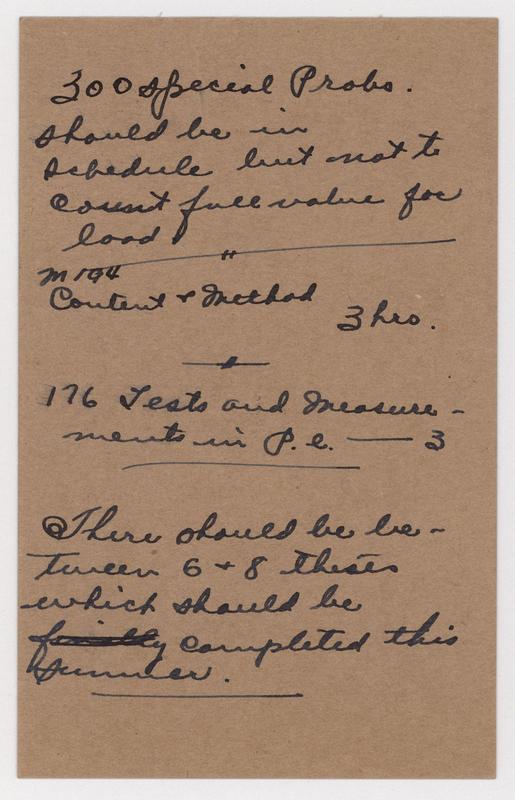 300 special Probs.
should be in
schedule but not to
count full value for
load
"
M194
Content & Method
3 hrs.
176 Tests and Measure-
ments in P.e. — 3
There should be be-
tween 6 + 8 thesis
which should be
finally completed this
summer.